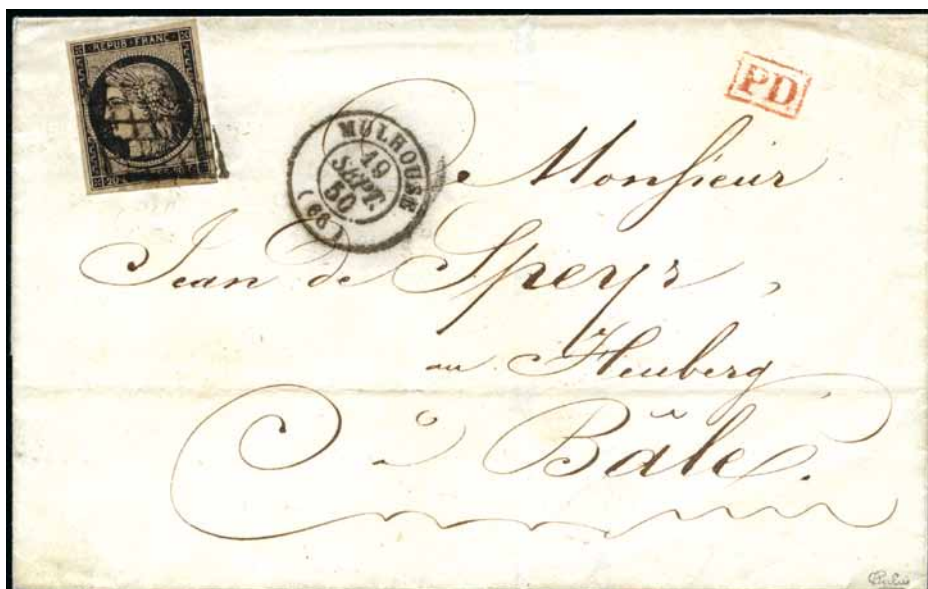 REPUB FRANC
20
PD
MULHOUSE
19
SEPT.
50
(66)
Monsieur
Jean de Speyr,
au Heuberg
à Bâle.